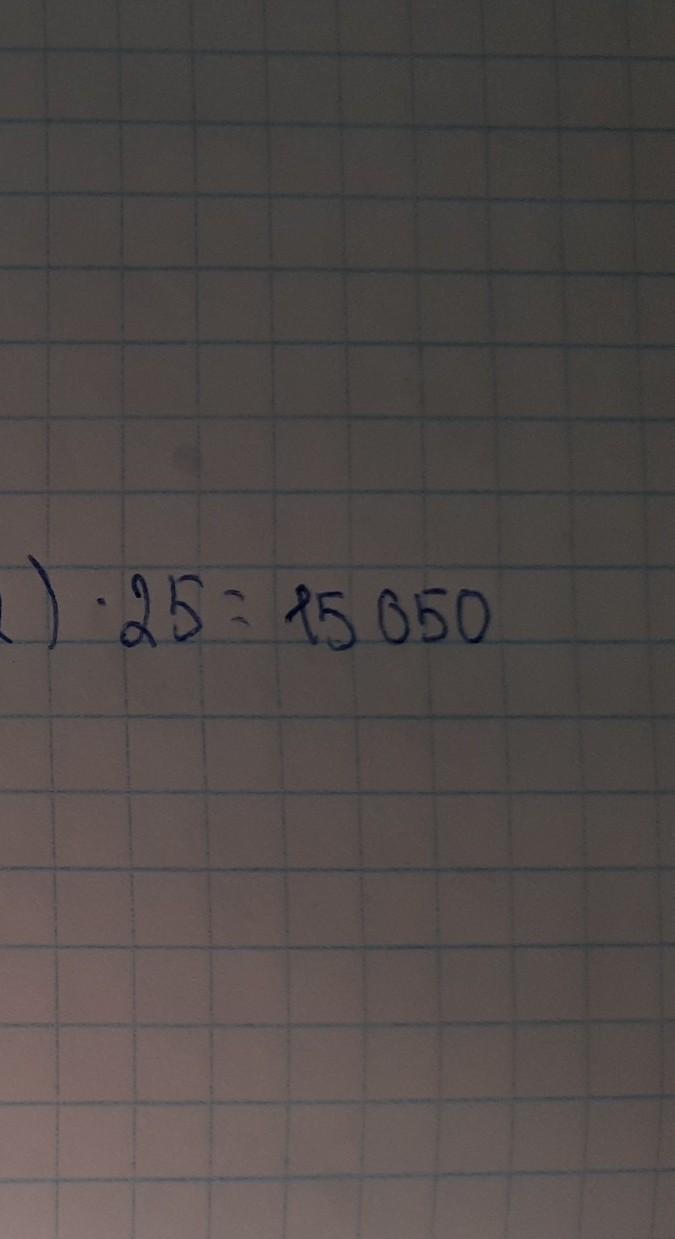 ) · 25 = 15 050